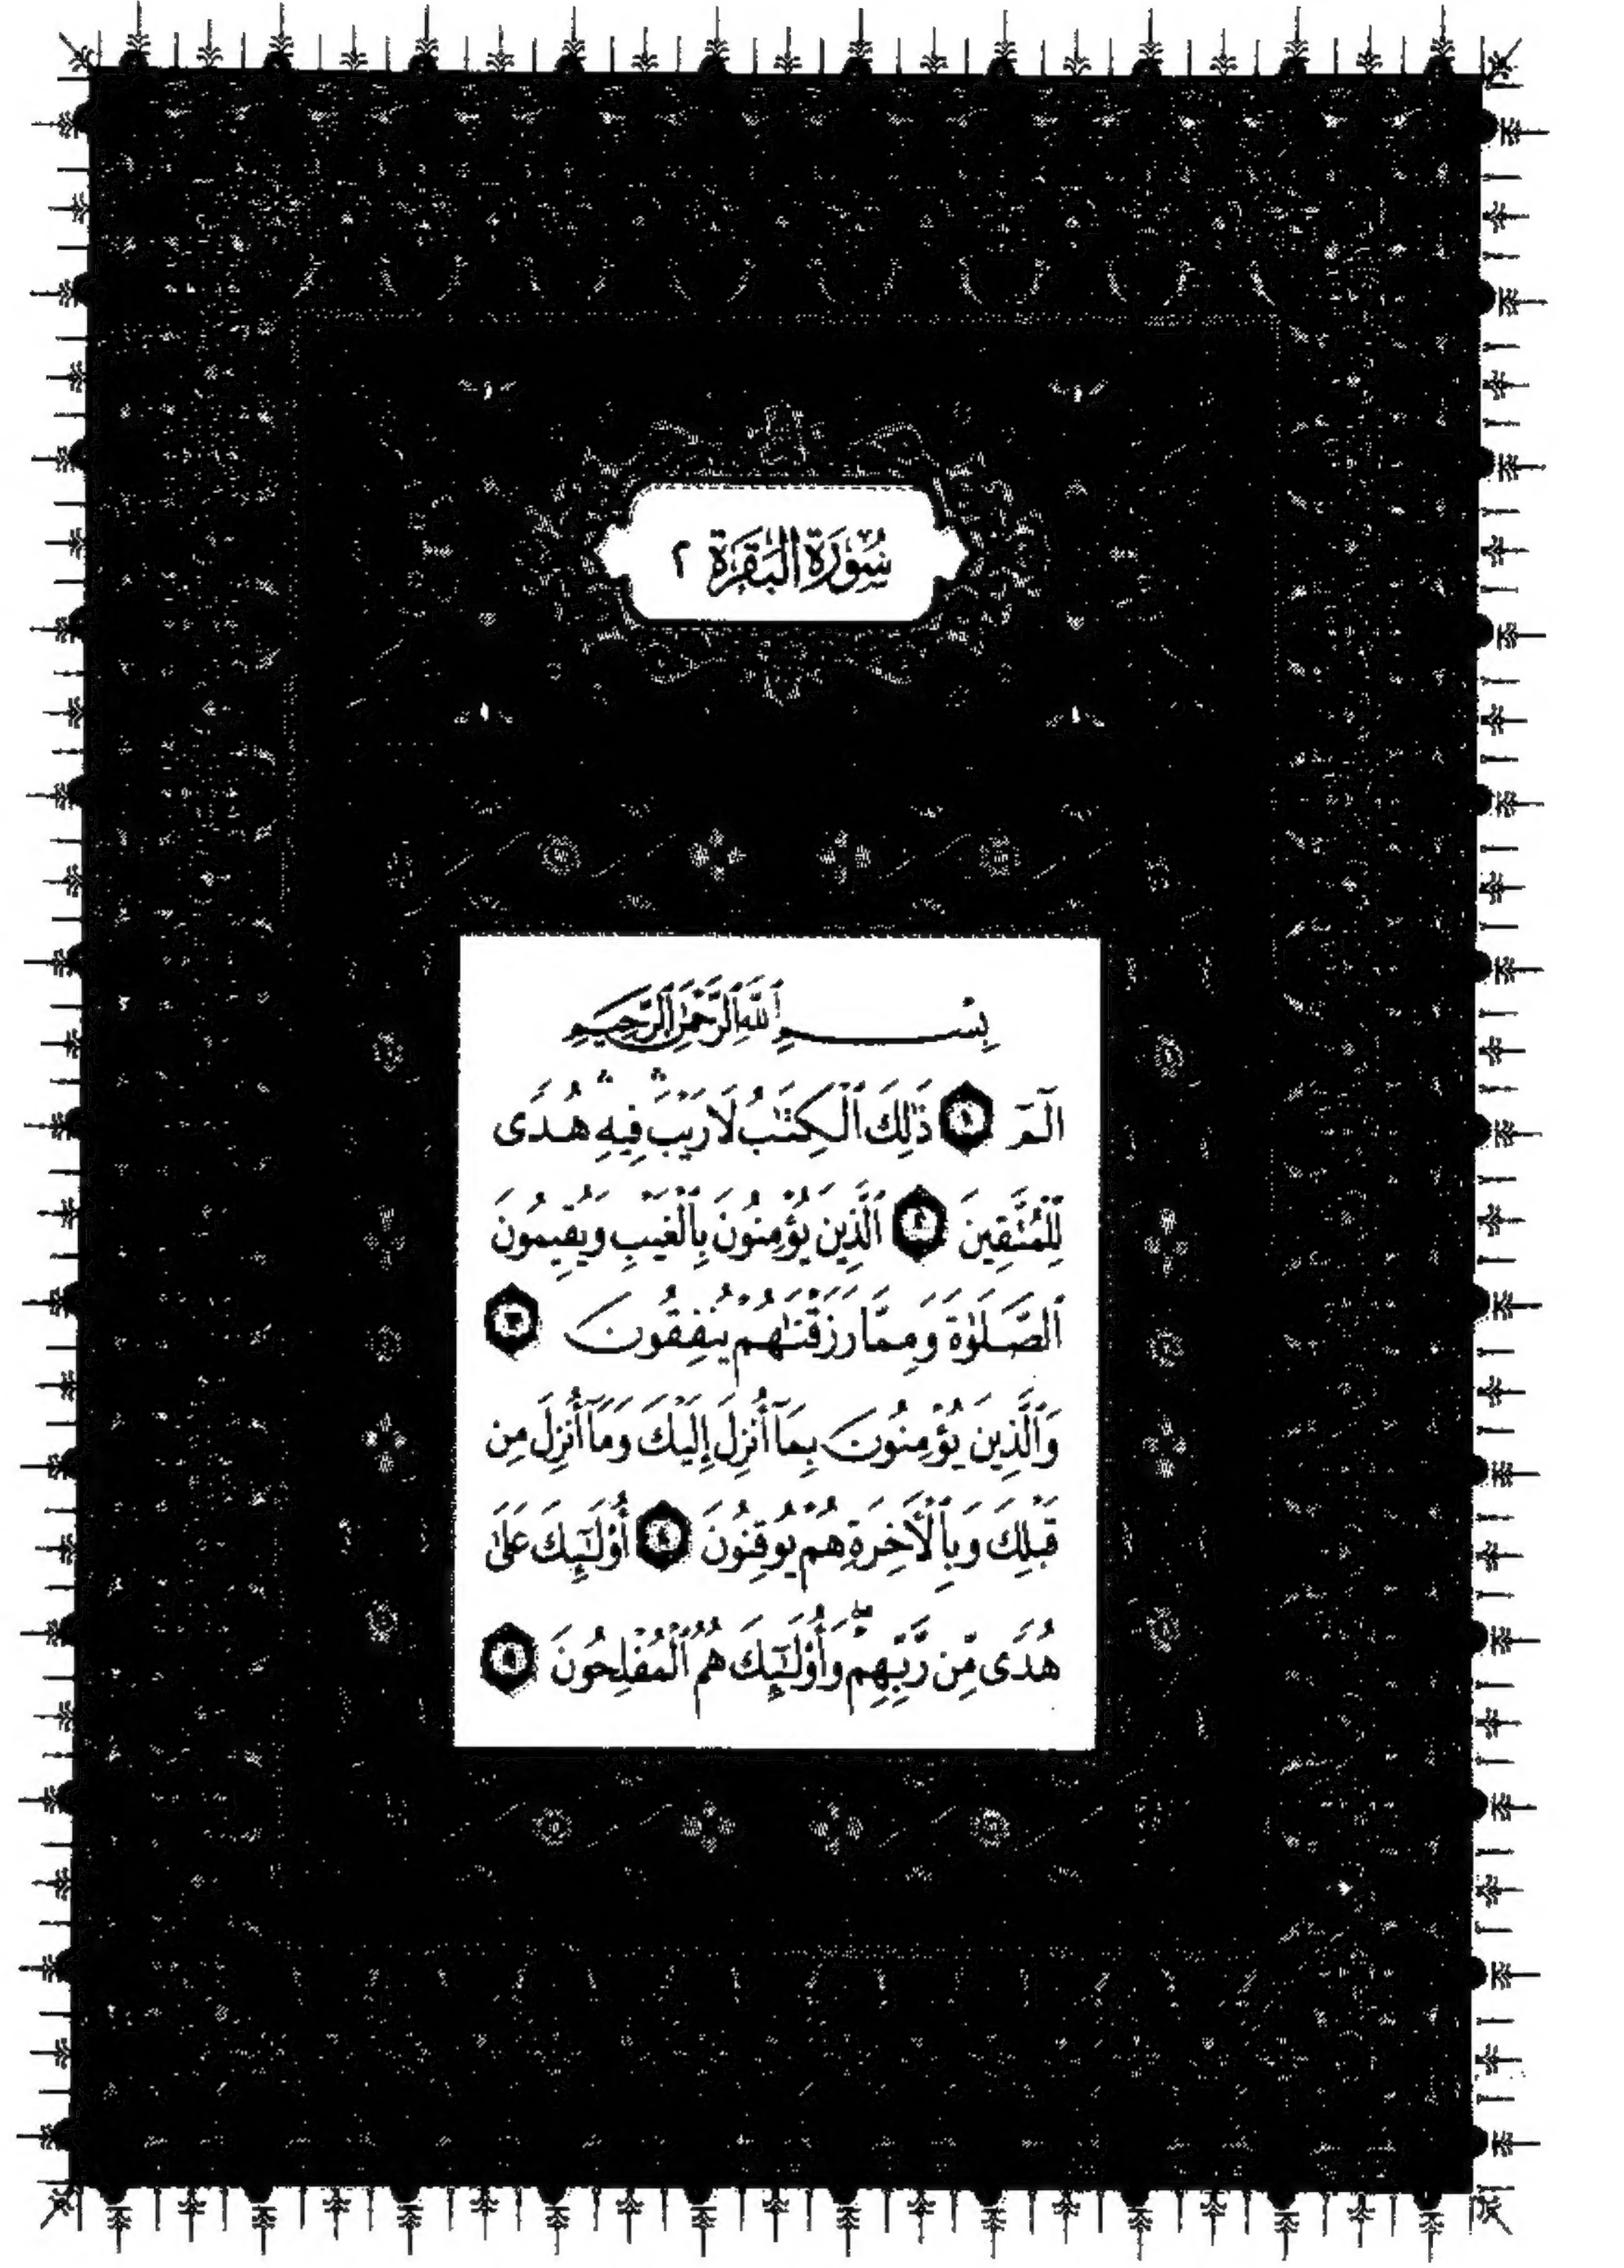 سُورَةُ البَقَرَةِ ٢
بِسْمِ ٱللَّهِ ٱلرَّحْمَٰنِ ٱلرَّحِيمِ
الٓمٓ ١ ذَٰلِكَ ٱلْكِتَٰبُ لَا رَيْبَ ۛ فِيهِ ۛ هُدًى
لِّلْمُتَّقِينَ ٢ ٱلَّذِينَ يُؤْمِنُونَ بِٱلْغَيْبِ وَيُقِيمُونَ
ٱلصَّلَوٰةَ وَمِمَّا رَزَقْنَٰهُمْ يُنفِقُونَ ٣
وَٱلَّذِينَ يُؤْمِنُونَ بِمَآ أُنزِلَ إِلَيْكَ وَمَآ أُنزِلَ مِن
قَبْلِكَ وَبِٱلْأَخِرَةِ هُمْ يُوقِنُونَ ٤ أُو۟لَٰٓئِكَ عَلَىٰ
هُدًى مِّن رَّبِّهِمْ ۖ وَأُو۟لَٰٓئِكَ هُمُ ٱلْمُفْلِحُونَ ٥